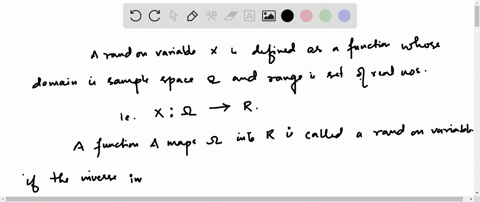 A randon variable X is defined as a function whose
domain is sample space Ω and range is set of real nos.
ie. X : Ω → R.
A function A maps Ω into R is called a randon variable
if the inverse in